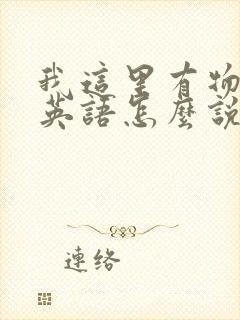 我這里有物
英語怎麼說
連絡